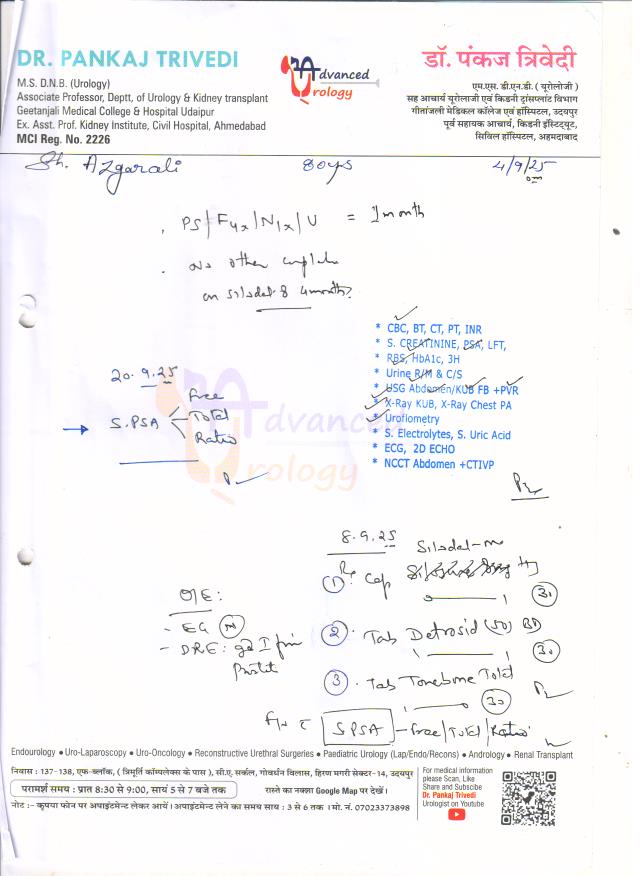 DR. PANKAJ TRIVEDI
M.S. D.N.B. (Urology)
Associate Professor, Deptt, of Urology & Kidney transplant
Geetanjali Medical College & Hospital Udaipur
Ex. Asst. Prof. Kidney Institute, Civil Hospital, Ahmedabad
MCI Reg. No. 2226
Advanced
Urology
डॉ. पंकज त्रिवेदी
एम.एस. डी.एन.डी. ( यूरोलोजी )
सह आचार्य यूरोलाजी एवं किडनी ट्रांसप्लांट विभाग
गीतांजली मेडिकल कॉलेज एवं हॉस्पिटल, उदयपुर
पूर्व सहायक आचार्य, किडनी इंस्टिट्यूट,
सिविल हॉस्पिटल, अहमदाबाद
Sh. Azgarali 80ys 4/9/25
PS/F4x/N1x/U = 1 month
No other
on Silodal-8 4 month
* CBC, BT, CT, PT, INR
* S. CREATININE, PSA, LFT,
* RBS, HbA1c, 3H
* Urine R/M & C/S
* USG Abdomen/KUB FB +PVR
* X-Ray KUB, X-Ray Chest PA
* Uroflometry
* S. Electrolytes, S. Uric Acid
* ECG, 2D ECHO
* NCCT Abdomen +CTIVP
20.9.25
S.PSA Free
Total
Ratio
Advanced
Urology
8.9.25
Silodal-
Rx
① Cap
30
② Tab Detrosid (50) BD
30
③ Tab Tonebone Total
30
O/E:
- EG N
- DRE: gd I firm
S PSA - Free/Total/Ratio
Endourology ● Uro-Laparoscopy ● Uro-Oncology ● Reconstructive Urethral Surgeries ● Paediatric Urology (Lap/Endo/Recons) ● Andrology ● Renal Transplant
निवास : 137-138, एफ-ब्लॉक, ( त्रिमूर्ति कॉम्पलेक्स के पास ), सी.ए. सर्कल, गोवर्धन विलास, हिरण मगरी सेक्टर-14, उदयपुर
परामर्श समय : प्रात 8:30 से 9:00, सायं 5 से 7 बजे तक
रास्ते का नक्शा Google Map पर देखें।
नोट :- कृपया फोन पर अपाइंटमेन्ट लेकर आयें। अपाइंटमेन्ट लेने का समय सायं : 3 से 6 तक । मो. नं. 07023373898
For medical information
please Scan, Like
Share and Subscibe
Dr. Pankaj Trivedi
Urologist on Youtube